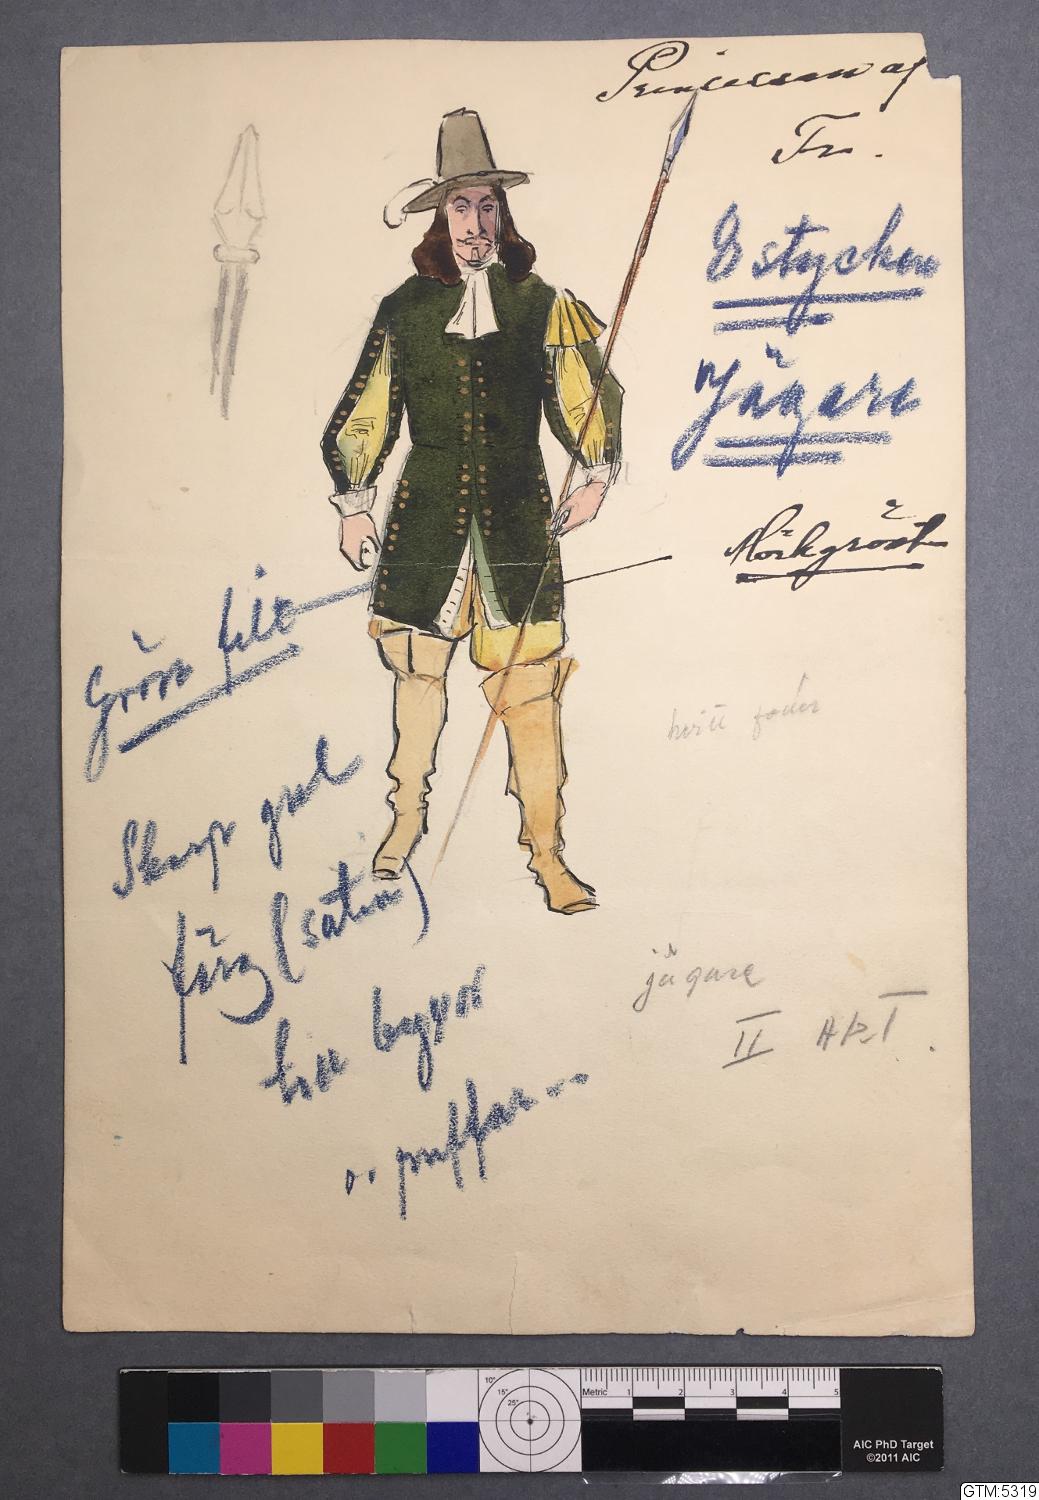 Princessan af
Fr.
8 stycken
Jägare
Mörkgrönt
Grön filt
Skarp gul
färg (satin)
till byxor
o. puffar...
hvitt foder
jägare
II AKT.
10°
15°
25°
Metric 1 2 3 4 5
AIC PhD Target
©2011 AIC
GTM:5319